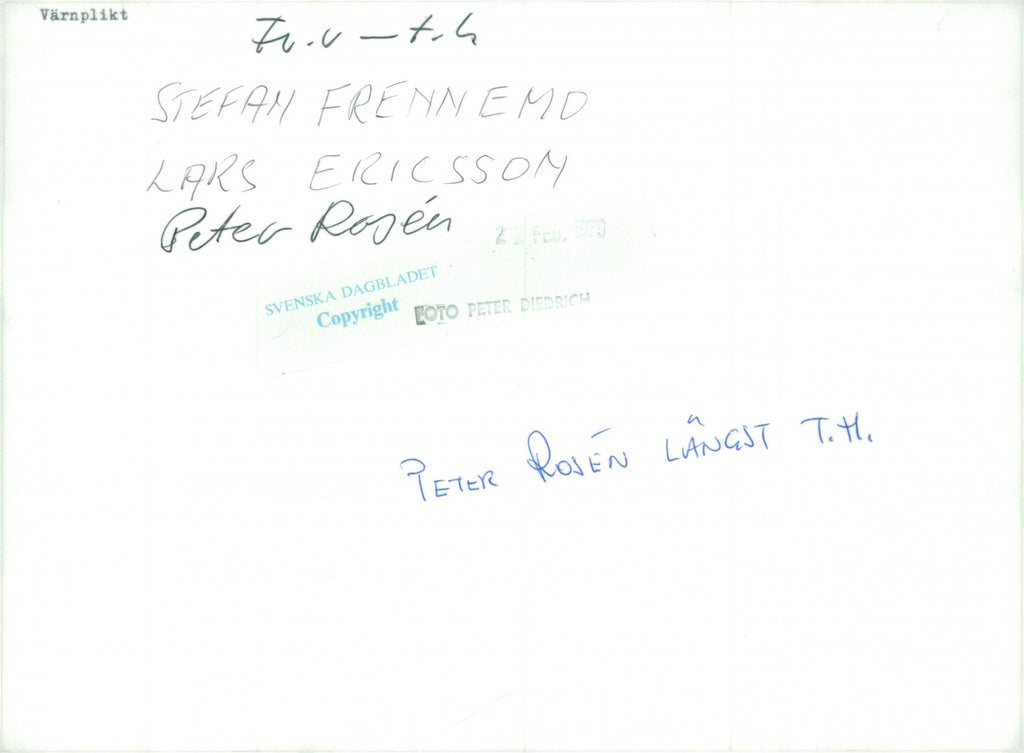 Värnplikt
Fr.v – t.h
STEFAN FRENNEMO
LARS ERICSSON
Peter Rosén
22 FEB. 1979
SVENSKA DAGBLADET
Copyright
FOTO PETER DIEDRICH
PETER ROSÉN LÄNGST T.H.